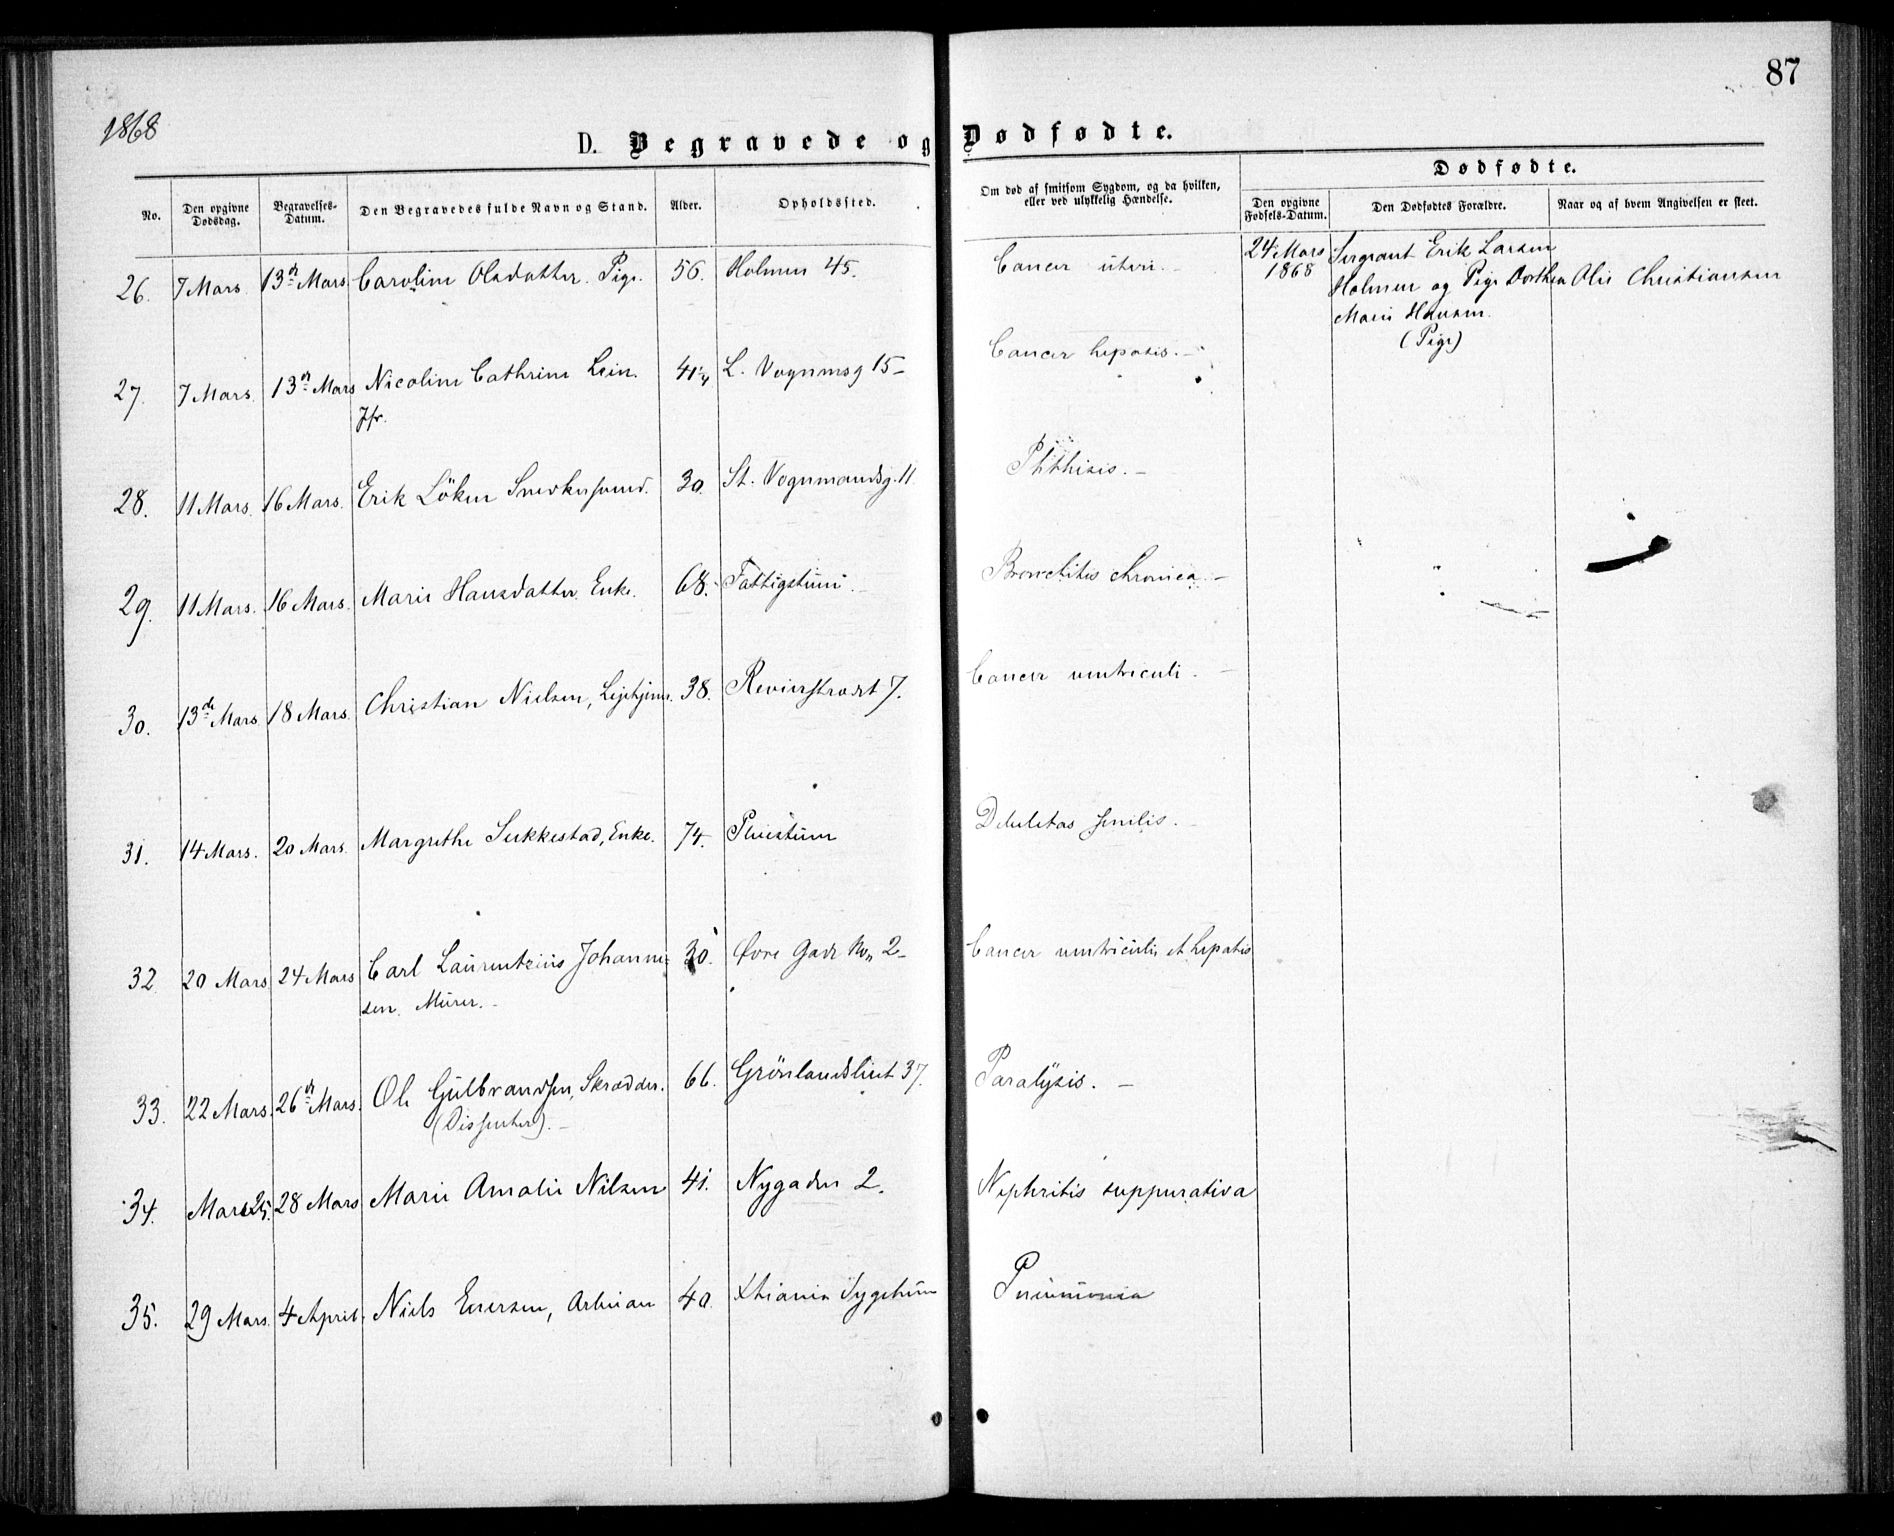 87
1868
D. Begravede og Dødfødte.
No.
Den opgivne Dødsdag.
Begravelses-Datum.
Den Begravedes fulde Navn og Stand.
Alder.
Opholdssted.
Om død af smitsom Sygdom, og da hvilken, eller ved ulykkelig Hændelse.
Dødfødte.
Den opgivne Fødsels-Datum.
Den Dødfødtes Forældre.
Naar og af hvem Angivelsen er skeet.
26. 7 Mars 13de Mars. Caroline Olsdatter. Pige. 56. Holmen 45. Cancer uteri.
24 Mars 1868
Sergeant Erik Larsen
Holmen og Pige Dorthea
Marie Hansen.
(Pige)
Olis Christiansen
27. 7 Mars. 13de Mars Nicoline Cathrine Lein. 41 L. Vognmsg 15 Cancer hepatis.
Jfr.
28. 11 Mars. 16 Mars. Erik Löken Snedkersvend. 30. St. Vognmandsg. 11. Phthisis.
29. 11 Mars. 16 Mars. Marie Hansdatter Enke. 68. Fattigstuen. Bronchitis chronica.
30. 13de Mars 18 Mars. Christian Nielsen, Leiekjører. 38. Revierstrædet 7. Cancer ventriculi.
31. 14 Mars. 20 Mars. Margrethe Sukkestad, Enke. 74. Pleiestuen Debilitas senilis.
32 20 Mars 24 Mars Carl Laurentzius Johanne- 30. Øvre Gade No 2 Cancer ventriculi et hepatis
sen. Murer.
33. 22 Mars. 26de Mars. Ole Gulbrandsen, Skrædder. 66. Grönlandsleret 37. Paralysis.
(Dissenter).
34. Mars 25. 28 Mars Marie Amalie Nilsen 41. Nygaden 2. Nephritis suppurativa
35. 29 Mars. 4 April. Niels Enersen, Arbman 40. Xtiania Sygehuus Pneumonia